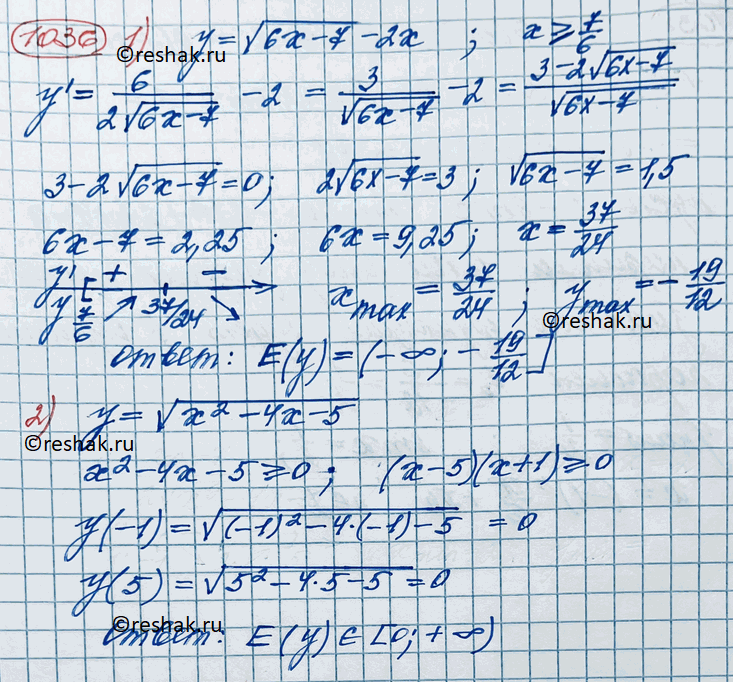 1036 1) y = √(6x-7) - 2x ; x ≥ 7/6
©reshak.ru
y' = 6/(2√(6x-7)) - 2 = 3/√(6x-7) - 2 = (3-2√(6x-7))/√(6x-7)
3-2√(6x-7) = 0; 2√(6x-7) = 3; √(6x-7) = 1,5
6x-7 = 2,25 ; 6x = 9,25; x = 37/24
y' [ + −
y 7/6 ↗ 37/24 ↘ x max = 37/24 ; y max = -19/12
©reshak.ru
ответ: E(y) = (-∞; -19/12]
2) y = √(x²-4x-5)
©reshak.ru
x²-4x-5 ≥ 0; (x-5)(x+1) ≥ 0
y(-1) = √((-1)²-4·(-1)-5) = 0
y(5) = √(5²-4·5-5) = 0
©reshak.ru
ответ: E(y) ∈ [0; +∞)